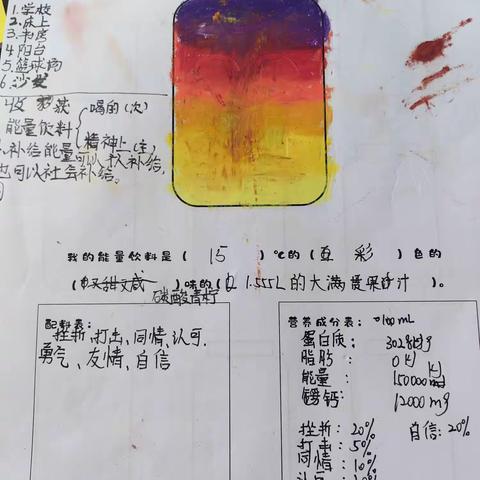 1.学校
2.床上
3.书房
4.阳台
5.篮球场
6.沙发
收获
喝的(次)
能量饮料
精神上(主)
补给能量可以个人补给,
也可以社会补给。
我的能量饮料是( 15 )℃的( 五彩 )色的
( 又甜又咸 )味的( 1.555L的大满贯果汁 )。
碳酸青柠
配料表:
挫折,打击,同情,认可,
勇气、友情、自信
营养成分表: 100mL
蛋白质:
脂肪: 0
能量: 150000
钙: 12000mg
挫折:20% 自信:20%
打击:50%
同情:10%